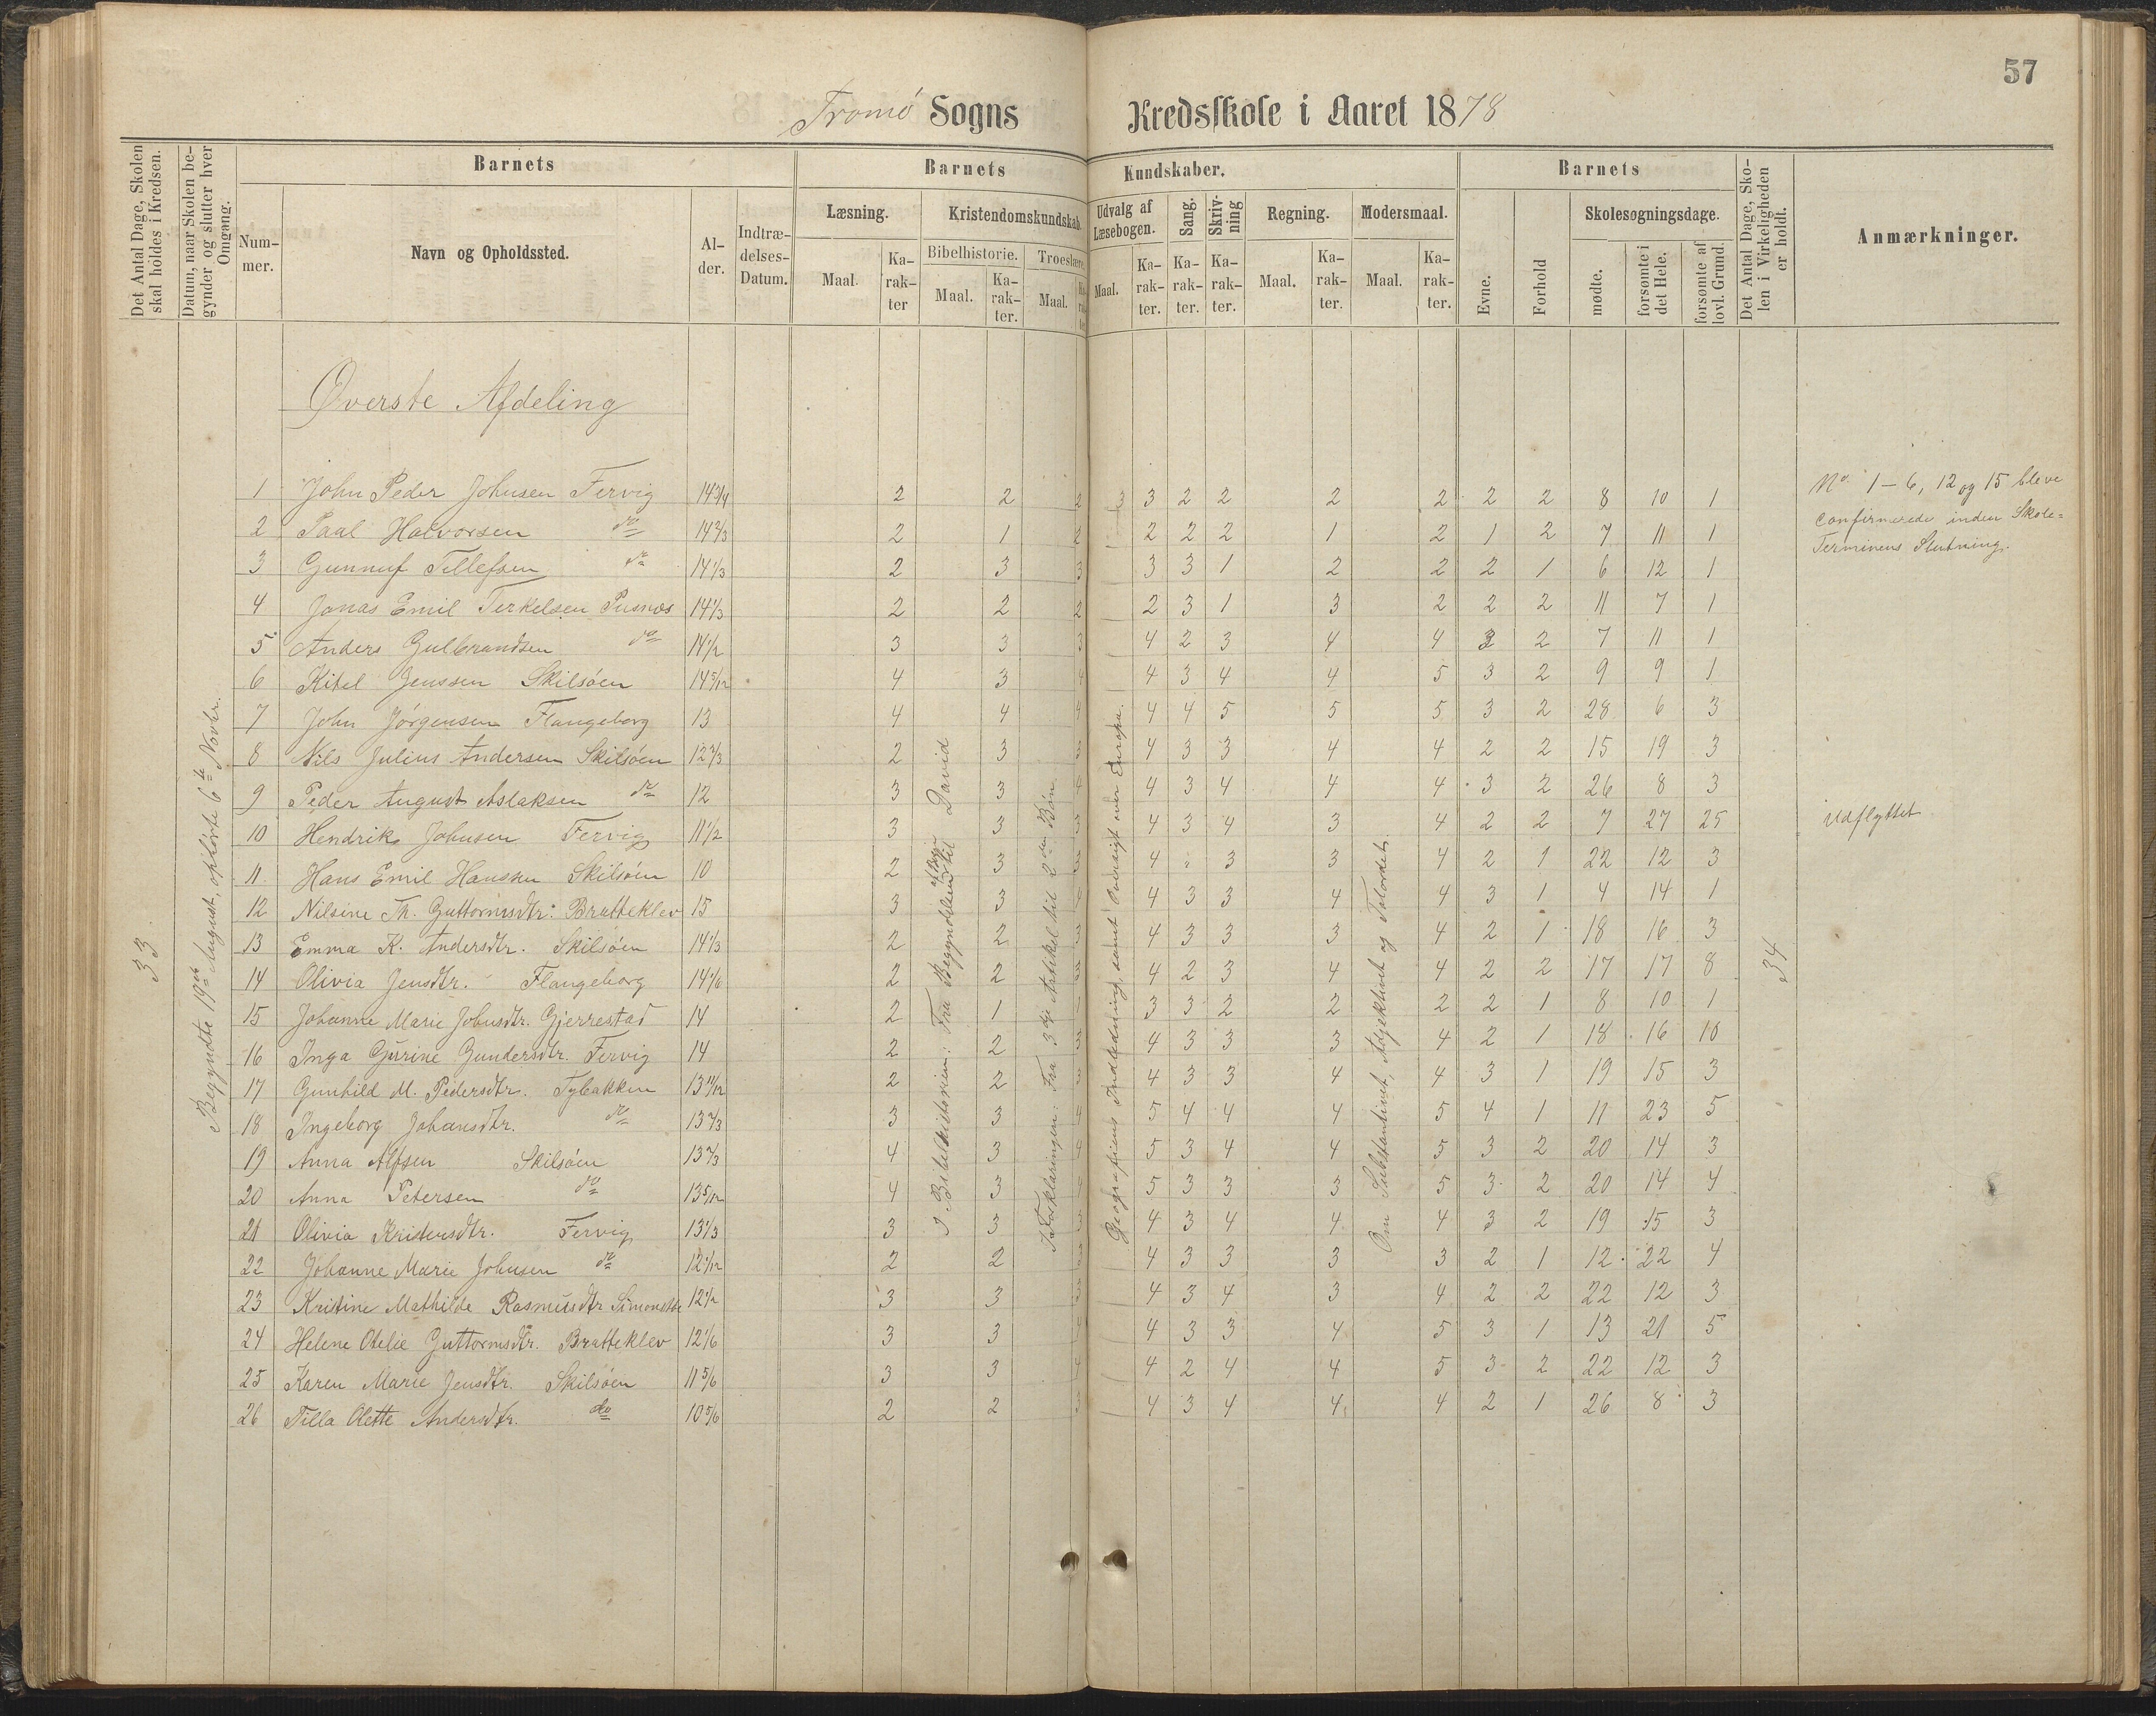 57
Tromø Sogns Kredsskole i Aaret 1878
Det Antal Dage, Skolen skal holdes i Kredsen.
Datum, naar Skolen begynder og slutter hver Omgang.
Barnets
Nummer.
Navn og Opholdssted.
Alder.
Indtrædelses-Datum.
Barnets Kundskaber.
Læsning.
Maal.
Karakter
Kristendomskundskab.
Bibelhistorie.
Maal.
Karakter.
Troeslære.
Maal.
Udvalg af Læsebogen.
Maal.
Karakter.
Sang.
Karakter.
Skrivning
Karakter.
Regning.
Maal.
Karakter.
Modersmaal.
Maal.
Karakter.
Barnets
Evne.
Forhold
Skolesøgningsdage.
mødte.
forsømte i det Hele.
forsømte af lovl. Grund.
Det Antal Dage, Skolen i Virkeligheden er holdt.
Anmærkninger.
Øverste Afdeling
33
Begyndte 19de August, ophørte 6te Novbr.
I Bibelhistorien: Fra Begyndelsen til David
I Forklaringen: Fra 3die Artikel til 2den Bøn
Geografiens Indledning, samt Oversigt over Europa.
Om Substantivet, Adjektivet og Talordet.
34
1 John Peder Johnsen Fervig 14 3/4 2 2 2 3 2 2 2 2 2 2 8 10 1
2 Paal Halvorsen do 14 2/3 2 1 2 2 2 2 1 2 1 2 7 11 1
3 Gunnuf Tellefsen do 14 1/3 2 3 3 3 3 1 2 2 2 1 6 12 1
4 Jonas Emil Terkelsen Pusnes 14 1/3 2 2 2 2 3 1 3 2 2 2 11 7 1
5 Anders Gulbrandsen do 14 1/2 3 3 3 4 2 3 4 4 3 2 7 11 1
6 Kitel Jenssen Skilsøen 14 5/12 4 3 4 4 3 4 4 5 3 2 9 9 1
7 John Jørgensen Flangeborg 13 4 4 4 4 4 5 5 5 3 2 28 6 3
8 Nils Julius Andersen Skilsøen 12 2/3 2 3 3 4 3 3 4 4 2 2 15 19 3
9 Peder August Aslaksen do 12 3 3 4 4 3 4 4 4 3 2 26 8 3
10 Hendrik Johnsen Fervig 11 1/2 3 3 3 4 3 4 3 4 2 2 7 27 25
11 Hans Emil Hanssen Skilsøen 10 2 3 3 4 " 3 3 4 2 1 22 12 3
12 Nilsine Th. Guttormsdtr: Bratteklev 15 3 3 4 3 3 4 4 3 1 4 14 1
13 Emma K. Andersdtr. Skilsøen 14 1/3 2 2 3 4 3 3 3 4 2 1 18 16 3
14 Olivia Jensdtr. Flangeborg 14 1/6 2 2 3 4 2 3 4 4 2 2 17 17 8
15 Johanne Marie Johnsdtr. Gjerrestad 14 2 1 3 3 2 2 2 2 1 8 10 1
16 Inga Gurine Gundersdtr. Fervig 14 2 2 3 4 3 3 3 4 2 1 18 16 10
17 Gunhild M. Pedersdtr. Tybakken 13 11/12 2 2 3 4 3 3 4 4 3 1 19 15 3
18 Ingeborg Johansdtr. do 13 2/3 3 3 4 5 4 4 4 5 4 1 11 23 5
19 Anna Alfsen Skilsøen 13 2/3 4 3 4 5 3 4 4 5 3 2 20 14 3
20 Anna Petersen do 13 5/12 4 3 4 5 3 3 3 5 3 2 20 14 4
21 Olivia Kristensdtr. Fervig 13 1/3 3 3 3 4 3 4 4 4 3 2 19 15 3
22 Johanne Marie Johnsen do 12 1/12 2 2 3 4 3 3 3 3 2 1 12 22 4
23 Kristine Mathilde Rasmusdtr 12 1/2 3 3 3 4 3 4 3 4 2 2 22 12 3
24 Helene Otelie Guttormsdtr. Bratteklev 12 1/6 3 3 4 4 3 3 4 5 3 1 13 21 5
25 Karen Marie Jensdtr. Skilsøen 11 5/6 3 3 4 4 2 4 4 5 3 2 22 12 3
26 Tilla Olette Andersdtr. do 10 5/6 2 2 3 4 3 4 4 4 2 1 26 8 3
No. 1-6, 12 og 15 bleve
confirmerede inden Skole-
Terminens Slutning.
udflyttet